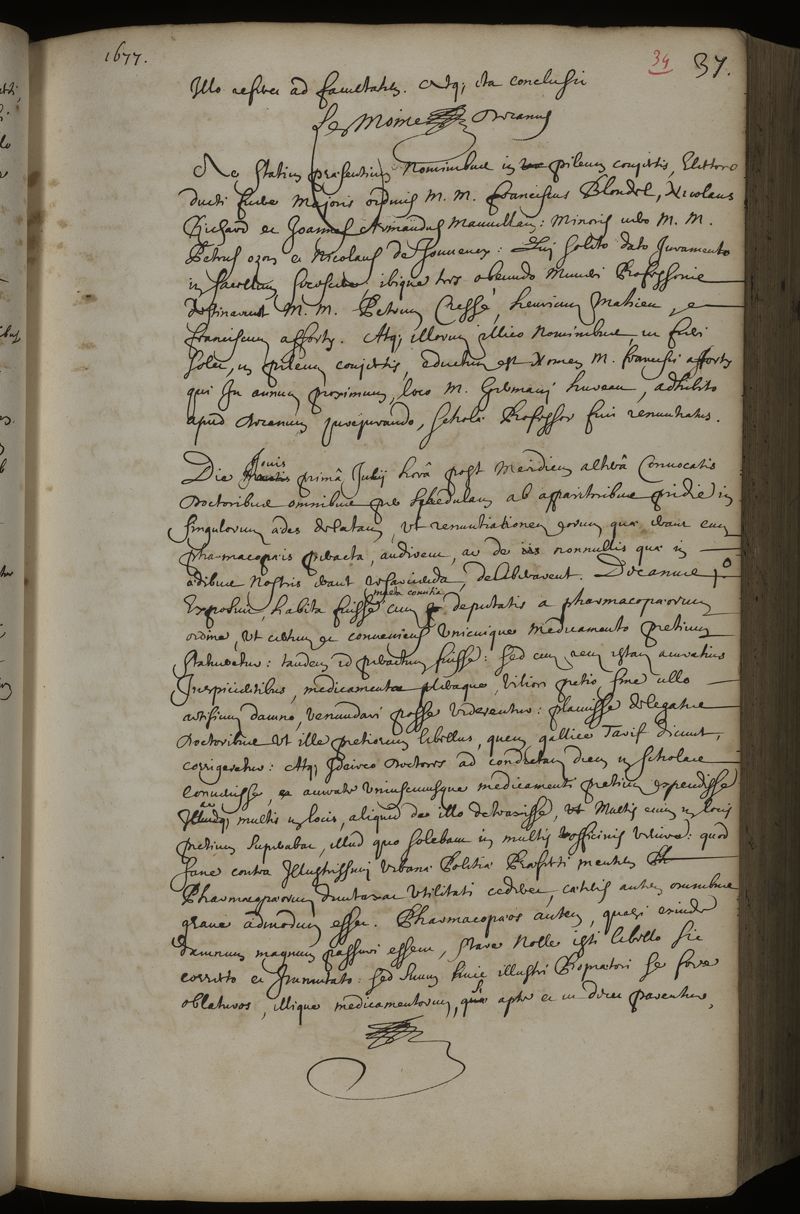 1677.
39 37.
Illo referet ad facultatem. Atq; ita conclusit
Le Moine Decanus
Ac statim præsentium Nominibus in pileum conjectis, Electores
ducti fuere majoris ordinis M. M. Franciscus Blondel, Nicolaus
Richard et Joannes Armandus Mauvillain: Minoris vero M. M.
Petrus ozon et Nicolaus de Jouvency: Qui solito dato Juramento
in sacellum secesserunt, ibique tres obeundo Muneri Professorio
destinarunt M. M. Petrum Cressé, henricum Mahieu, et
franciscum afforty. Atq; illorum illico Nominibus ut fieri
solet, in pileum conjectis, eductum est Nomen M. francisci afforty
qui In annum proximum, loco M. Germani hureau, adhibito
apud Decanum jurejurando, scholæ Professor fuit renuntiatus.
Die Jovis primâ Julij horâ post Meridiem alterâ Convocatis
Doctoribus omnibus per schedulam ab apparitoribus pridie in
singulorum ædes delatam, ut renuntiationem eorum quæ erant cum
pharmacopæis peracta, audirent, ac de nonnullis quæ in
ædibus Nostris erant resarcienda, deliberarent. Decanus 1º
Exposuit, habita fuisse multa comitia cum deputatis a pharmacopæorum
ordine, ut certum et conveniens unicuique medicamento pretium
statueretur: tandem id peractum fuisse: sed cum rem istam accuratius
Inspicientibus, medicamenta pleraque, viliori pretio, sine ullo
artificum damno, venundari posse viderentur: placuisse delegatis
Doctoribus ut ille pretiorum libellus, quem gallice Tarif dicunt,
corrigeretur: Atq; Idcirco Doctores ad condictam diem in scholas
convenisse, et accurate uniuscuiusque medicamenti pretium expendisse
multis in locis, aliquid de illo detraxisse, Multis enim in locis
pretium superabat, illud quo solebant in multis officinis vænire: quod
sane contra Illustrissimi Urbanæ Politiæ Præfecti mentem
Pharmacopæorum duntaxat utilitati cederet, cæteris autem omnibus
grave admodum esset. Pharmacopæos autem, quasi exinde
damnum magnum passuri essent, stare Nolle isti libello sic
correcto et Immutato: sed suum huic illustri Proprætori se fore
oblaturos, illique medicamentorum, quæ apte et in dies parentur,